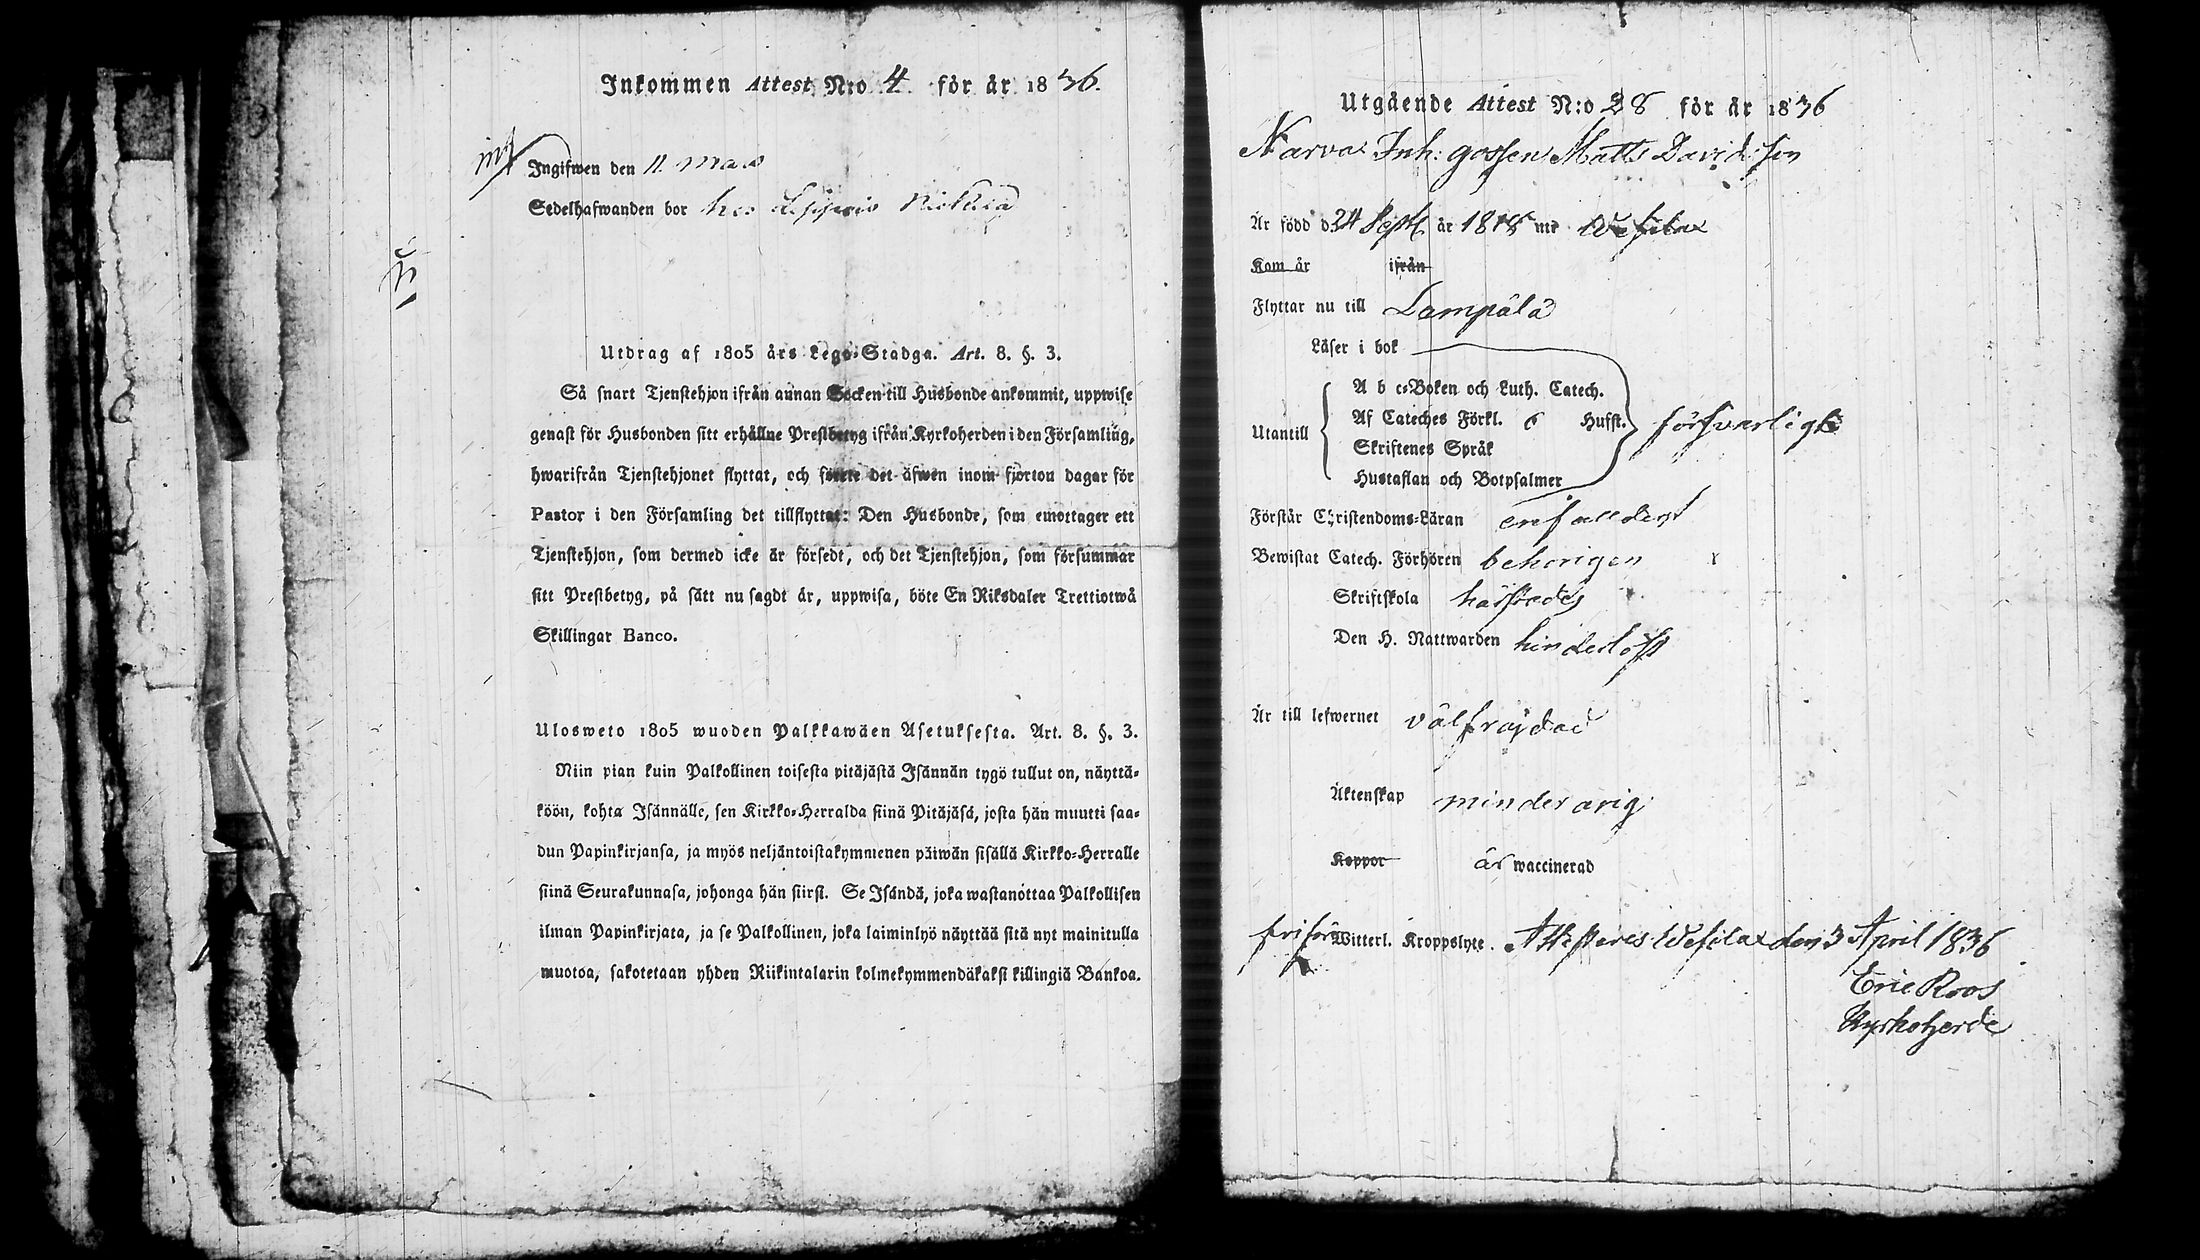 Inkommen Attest N:o 4 för år 1836.
Ingifwen den 11 mars
Sedelhafwanden bor hos
Utdrag af 1805 års Lego-Stadga. Art. 8. §. 3.
Så snart Tjenstehjon ifrån annan Socken till Husbonde ankommit, uppwise
genast för Husbonden sitt erhållne Prestbetyg ifrån Kyrkoherden i den Församling,
hwarifrån Tjenstehjonet flyttat, och förete det äfwen inom fjorton dagar för
Pastor i den Församling det tillflyttat: Den Husbonde, som emottager ett
Tjenstehjon, som dermed icke är försedt, och det Tjenstehjon, som försummar
sitt Prestbetyg, på sätt nu sagdt är, uppwisa, böte En Riksdaler Trettiotwå
Skillingar Banco.
Ulosweto 1805 wuoden Palkkawäen Asetuksesta. Art. 8. §. 3.
Niin pian kuin Palkollinen toisesta pitäjästä Isännän tygö tullut on, näyttä-
köön, kohta Isännälle, sen Kirkko-Herralda siinä Pitäjäsä, josta hän muutti saa-
dun Papinkirjansa, ja myös neljäntoistakymmenen päiwän sisällä Kirkko-Herralle
siinä Seurakunnasa, johonga hän siirsi. Se Isändä, joka wastanottaa Palkollisen
ilman Papinkirjata, ja se Palkollinen, joka laiminlyö näyttää sitä nyt mainitulla
muotoa, sakotetaan yhden Riikintalarin kolmekymmendäkaksi killingiä Bankoa.
Utgående Attest N:o 28 för år 1836
Narva Inh: gossen Matts Davidsson
Är född d 24 Sept. år 1818 uti Wesilax
Kom år ifrån
Flyttar nu till Lempälä
Läser i bok
A b c-Boken och Luth. Catech.
Af Cateches Förkl. 6 Hufst.
Utantill försvarligt
Skriftenes Språk
Hustaflan och Botpsalmer
Förstår Christendoms-Läran enfalldigt
Bewistat Catech. Förhören behörigen
Skriftskola härstedes
Den H. Nattwarden hinderlöst
Är till lefwernet välfrajdad
Äktenskap minderårig
Koppor är waccinerad
fri från Witterl. Kroppslyte. Attesteres Wesilax den 3 April 1836
Eric Roos
Kyrkoherde